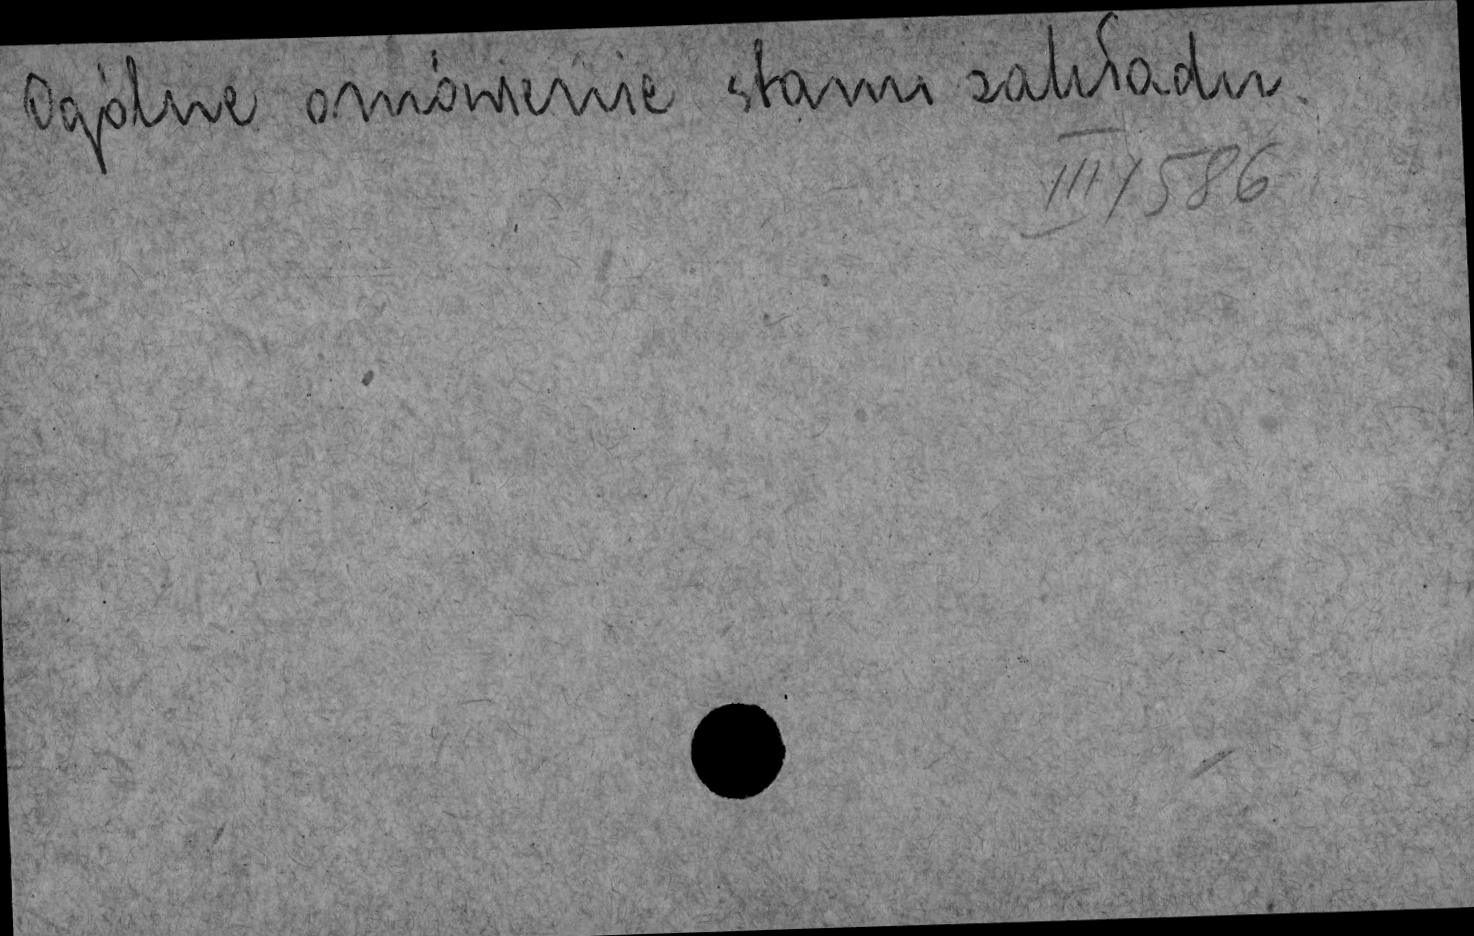 Ogólne omówienie stanu zakładu.
III/586